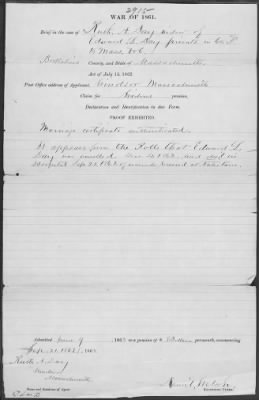 2915
WAR OF 1861.
Brief in the case of Ruth A. Day widow of
Edward L. Day private in Co. F.
Mass Vol.
Berkshire County, and State of Massachusetts
Act of July 14, 1862
Post Office address of Applicant, Windsor Massachusetts
Claim for pension.
Declaration and Identification in due Form.
PROOF EXHIBITED.
Marriage certificate authenticated
It appears from the Rolls that Edward L.
Day was enrolled 1862, and died in
Hospital Sep. 22 1862 of wounds received at Antietam.
Admitted June 9, 1863 to a pension of 8 Dollars per month, commencing
Sep. 22, 1862
Ruth A. Day
Windsor
Massachusetts
Examining Clerk.
Name and Residence of Agent